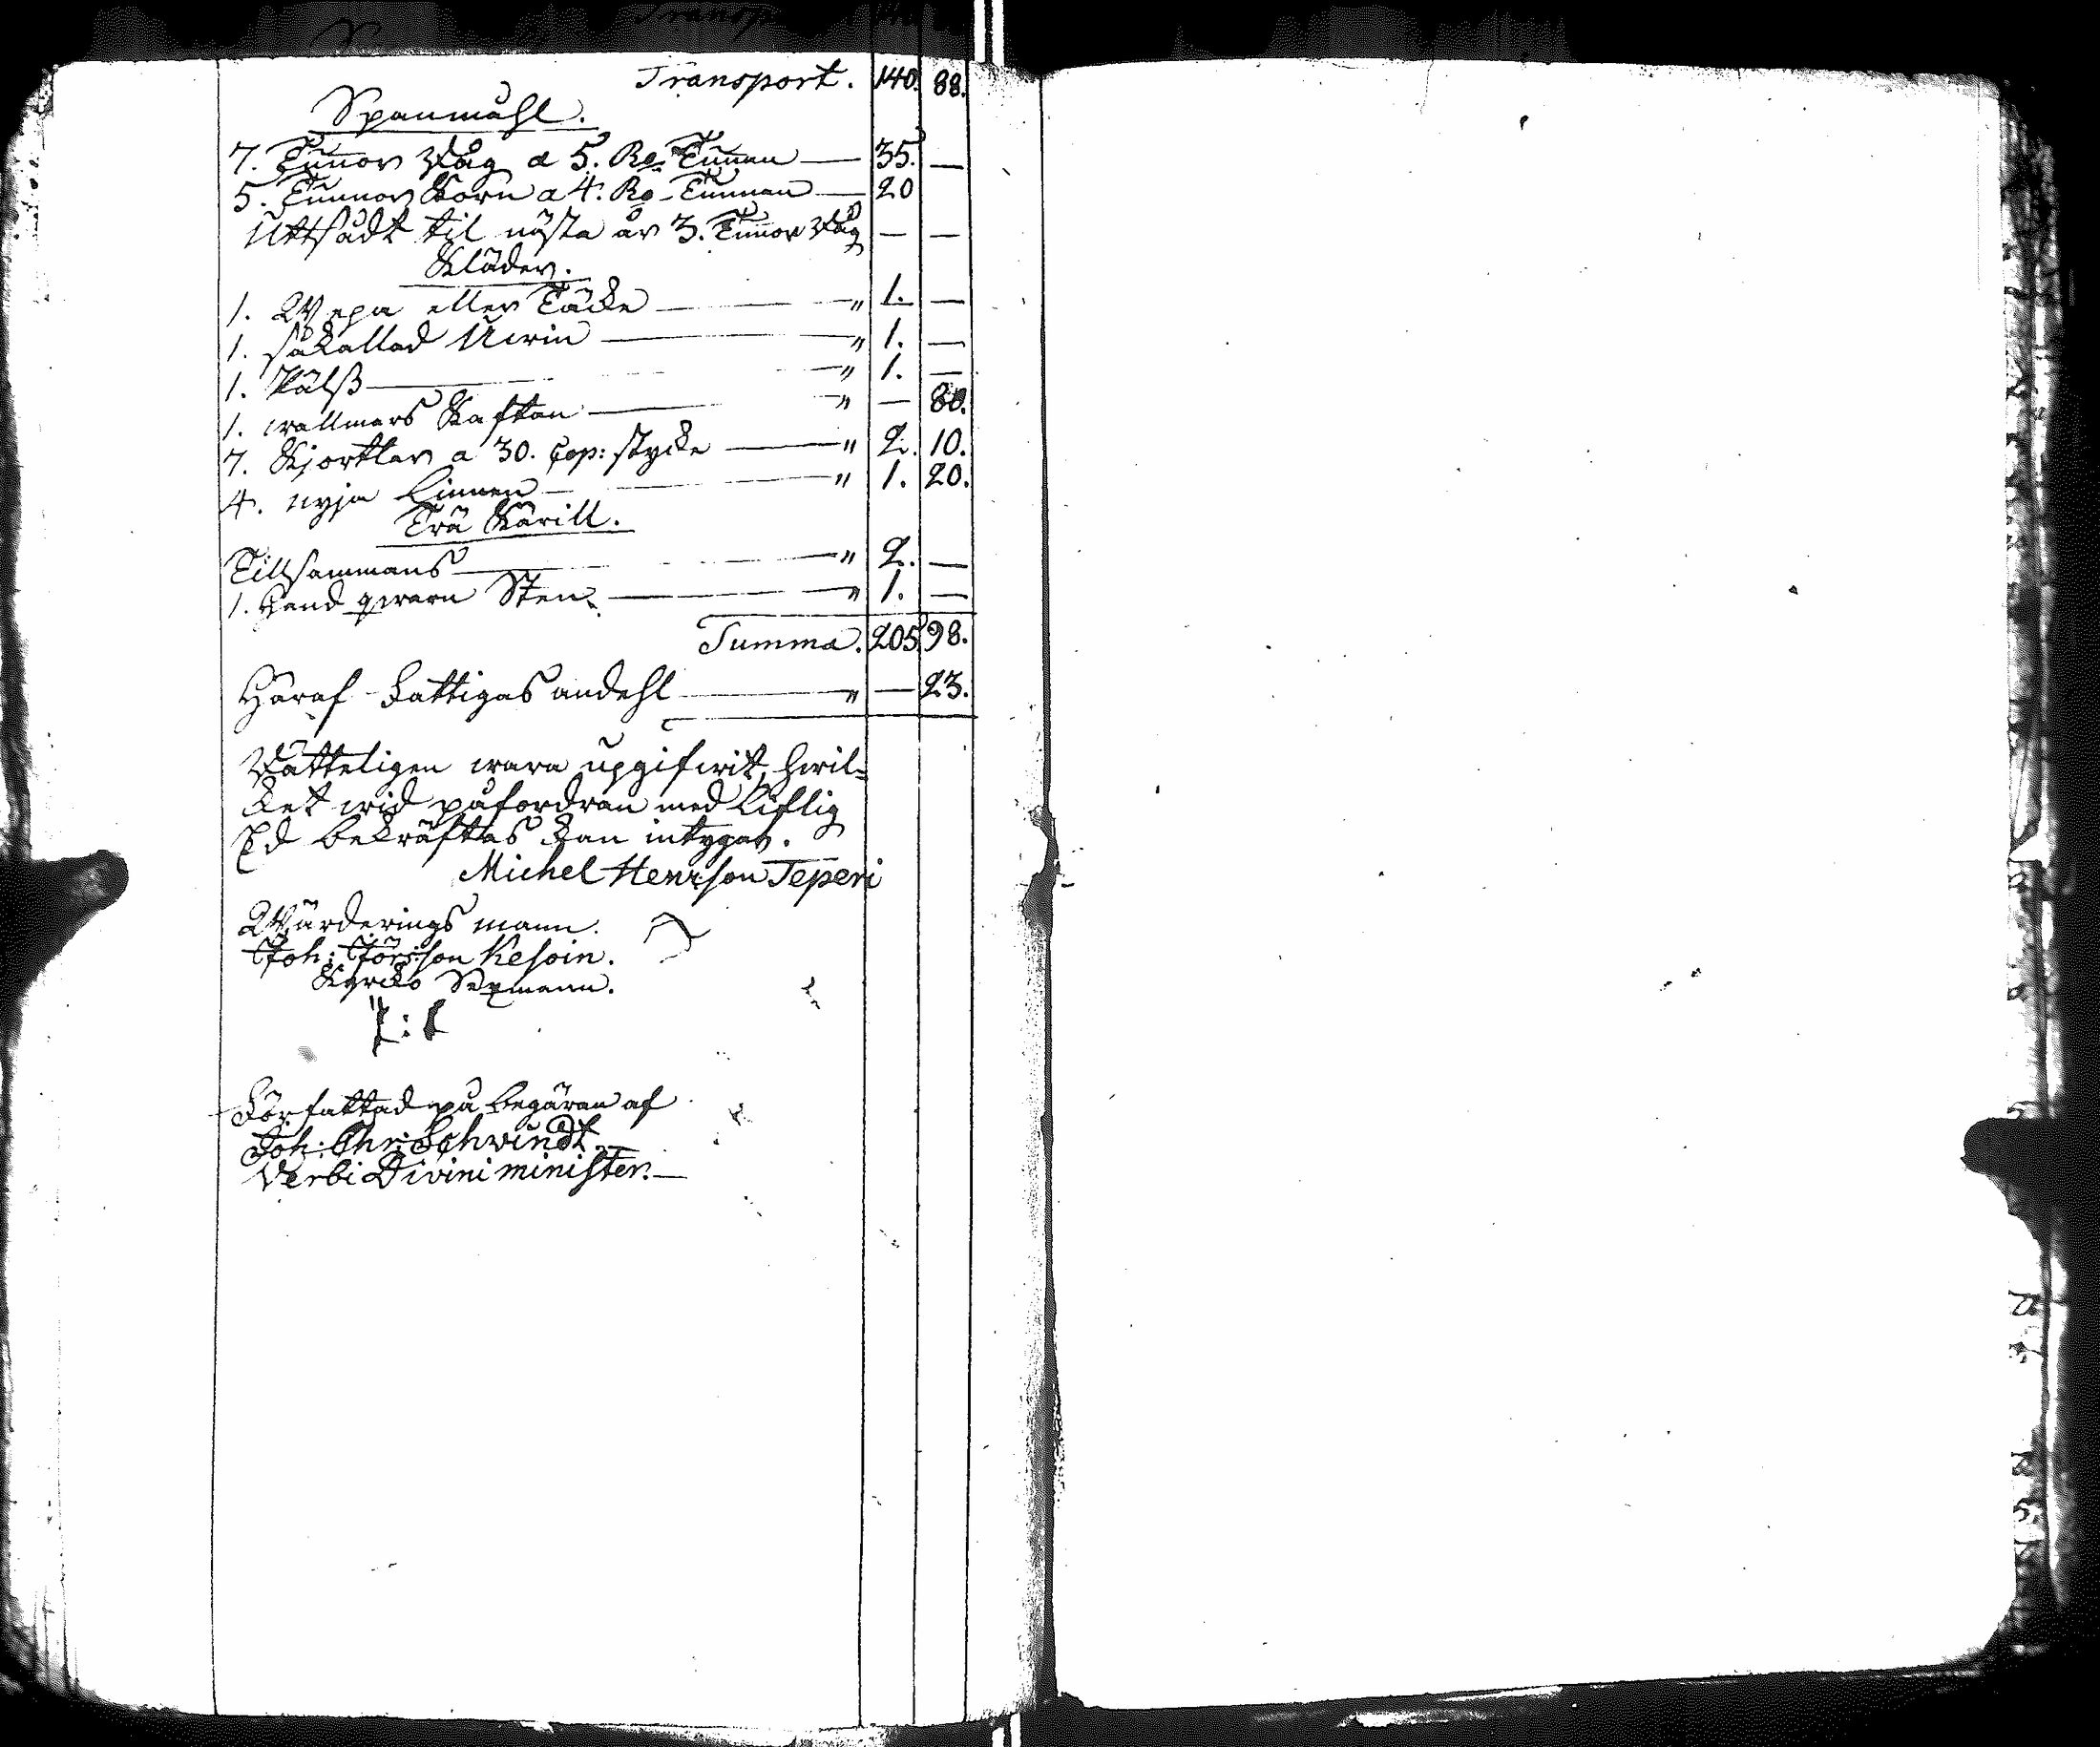 Transport. 140. 88.
Spanmåhl.
7. Tunnor Råg a 5. Ro Tunnan — 35. —
5. Tunnor Korn a 4. Ro Tunnan — 20
Uttsådt til nästa år 3. Tunnor Råg — —
Kläder.
1. Wepa eller Täcke — " 1. —
1. såkallad — " 1. —
1. Päls — " 1. —
1. wallmars Kaftan — " — 80.
7. Skjortlar a 30. Cop: stycke — " 2. 10.
4. nyja Linnen — " 1. 20.
Trä Kärill.
Tillsammans — " 2. —
1. Hand qwarn Sten — " 1. —
Summa. 205 98.
Häraf Fattigas andehl — " — 23.
Rätteligen wara upgifwit, hwil=
ket wid påfordran med Liflig
Ed bekräftas kan intygar.
Michel Henrson Teperi
Wärderings mann.
Joh: Jörsson Kesoin.
Kyrko Sexmann.
Författad på begäran af
Joh: Chr: Schwindt
Verbi Divini minister. —